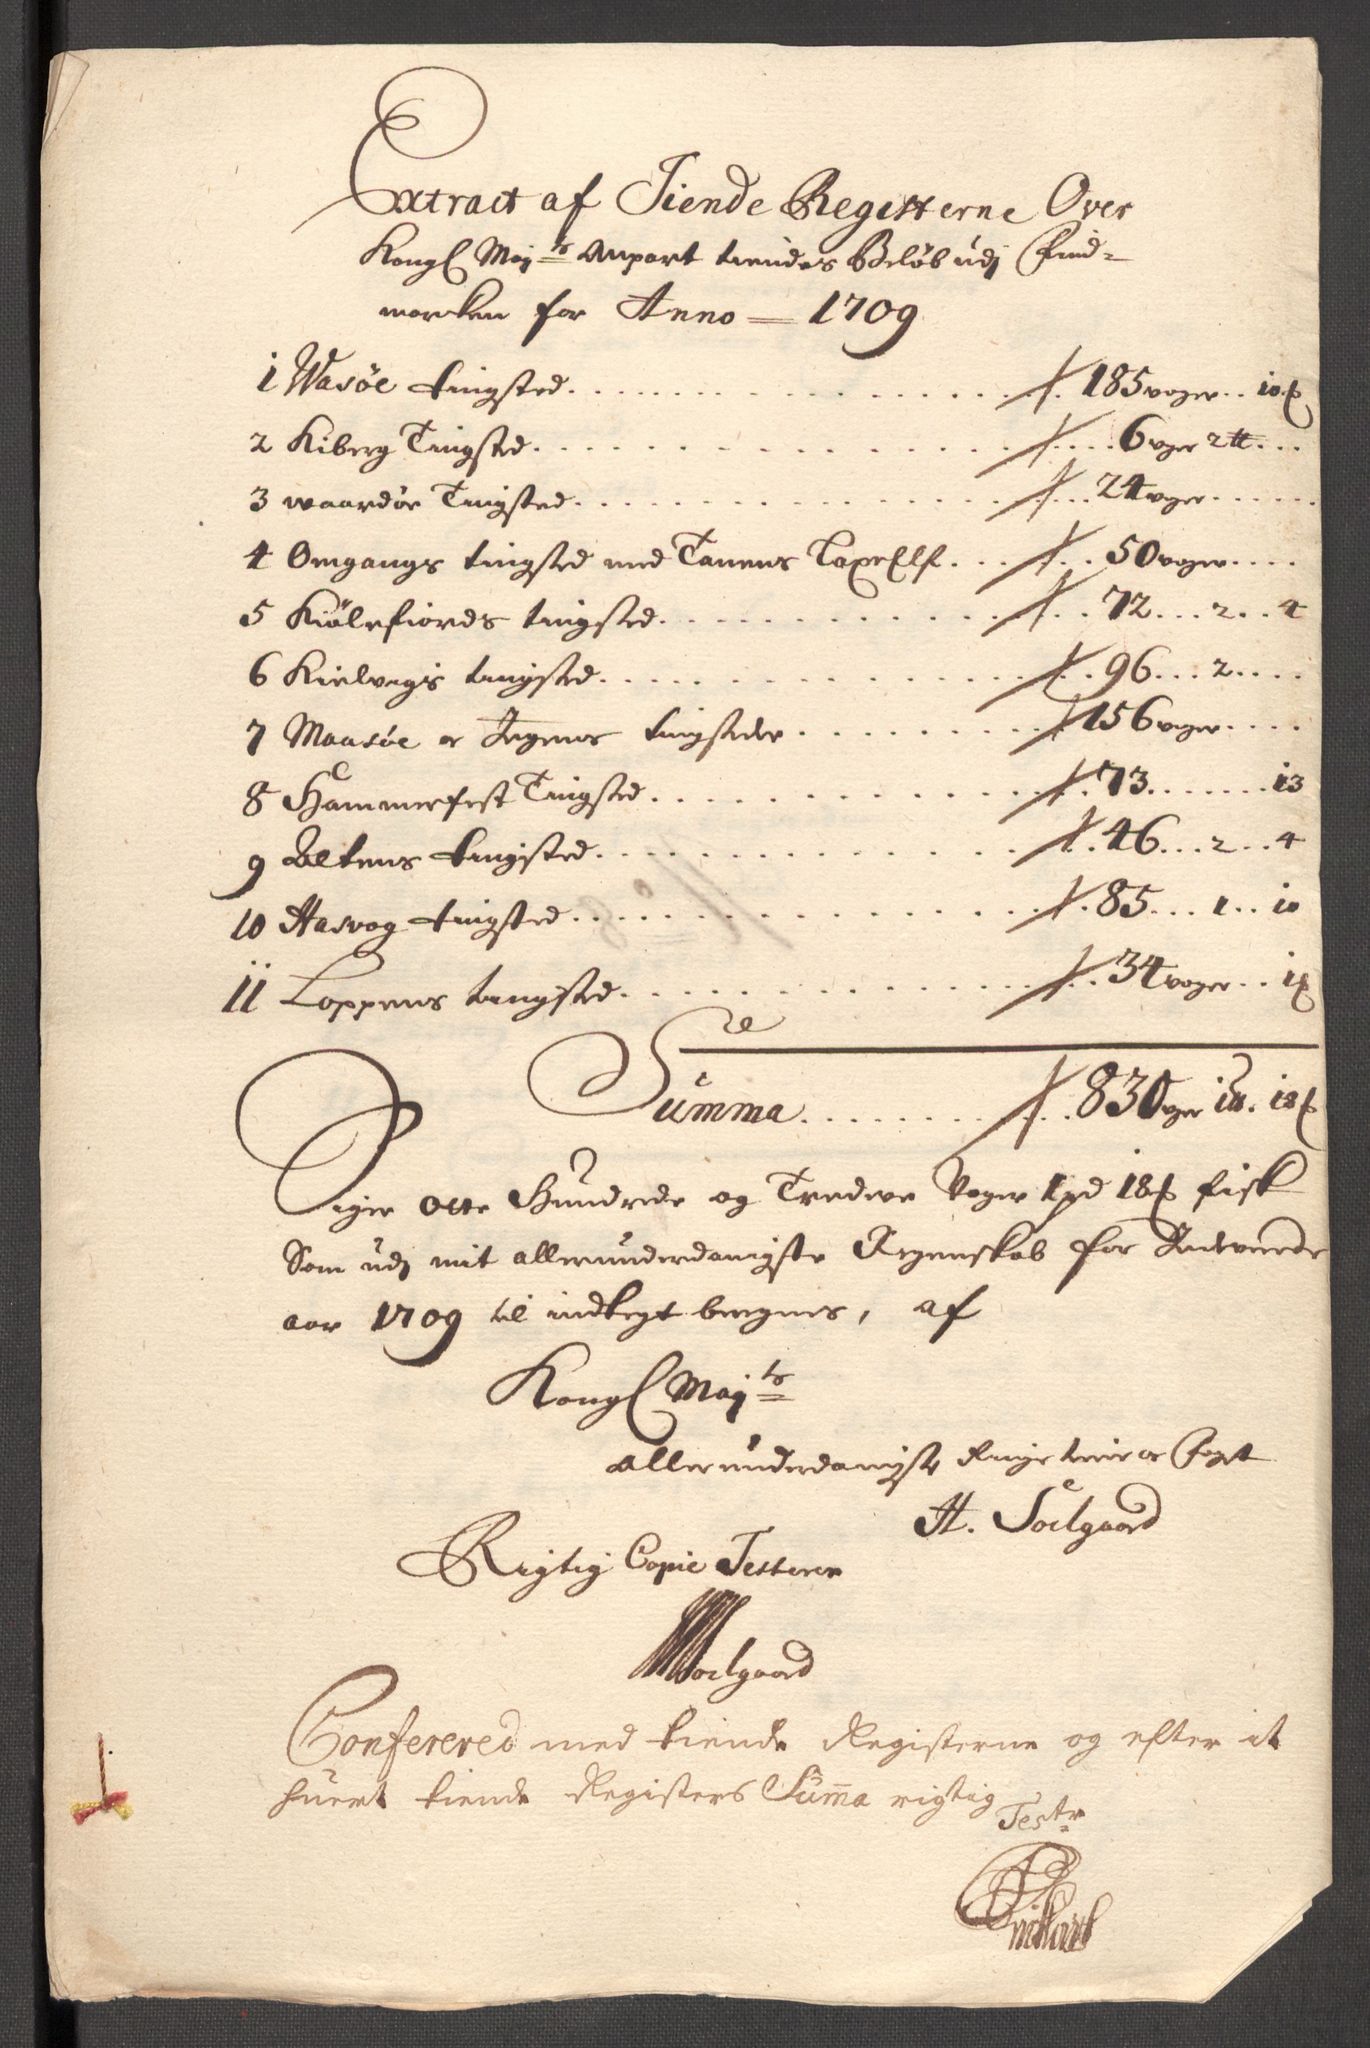 Extract af Tiende Registerne Over
Kongl Maj:ts Anpart tiendes Beløb udj Find=
marcken for Anno 1709
1 Wasøe tingsted 185 voger 10 ℔
2 Kiberg Tingsted 6 voger 2 ...
3 waardøe Tingsted 24 voger
4 Omgangs tingsted med Tanens LaxeElf 50 voger
5 Kiølefiords tingsted 72 2 4
6 Kielvegs tingsted 96 2
7 Maasøe oc Ingens tingsteder 156 voger
8 Hammerfest Tingsted 73 13
9 Altens tingsted 46 2 4
10 Hasvog tingsted 85 1 10
11 Loppens tingsted 34 voger 1 ℔
Summa 830 voger 1 18 ℔
Siger Otte Hundrede og Tredeve Voger 1 pd 18 ℔ fisk
Som udj mit allerunderdanigste Regenskab for
aar 1709 til indtegt beregnes, af
Kongl Maj:ts
allerunderdanigste oc Foget
H. Soelgaard
Rigtig Copie Testerer
Soelgaard
Confereret med tiende Registerne og efter it
huert tiende Registers Summa rigtig
Test:r